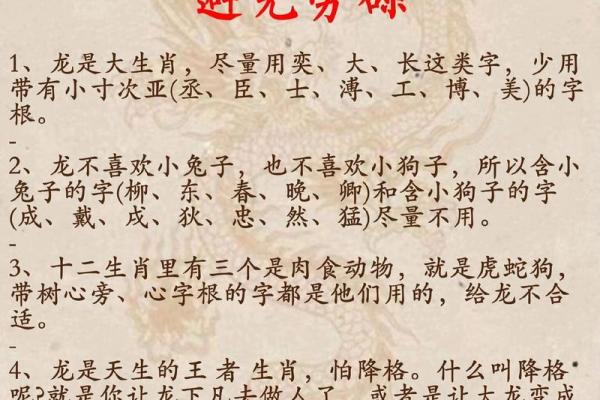 避免劳碌
1、龙是大生肖，尽量用奕、大、长这类字，少用
带有小寸次亚(丞、臣、士、溥、工、博、美)的字
根。
-
2、龙不喜欢小兔子，也不喜欢小狗子，所以含小
兔子的字(柳、东、春、晚、卿)和含小狗子的字
(成、戴、戌、狄、忠、然、猛)尽量不用。
-
3、十二生肖里有三个是肉食动物，就是虎蛇狗，
带树心旁、心字根的字都是他们用的，给龙不合
适。
-
4、龙是天生的王者生肖，怕降格。什么叫降格
呢?就是你让龙下凡去做人了，或者是让大龙变成